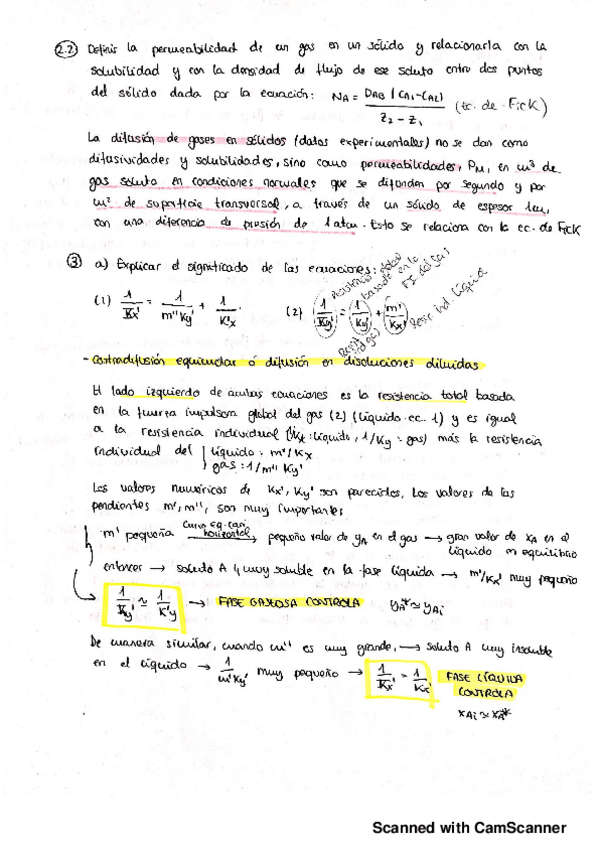 2.2) Definir la permeabilidad de un gas en un sólido y relacionarla con la
solubilidad y con la densidad de flujo de ese soluto entre dos puntos
del sólido dada por la ecuación: NA = DAB (CA1-CA2) / Z2 - Z1 (ec. de Fick)
La difusión de gases en sólidos (datos experimentales) no se dan como
difusividades y solubilidades, sino como permeabilidades, PM, en m³ de
gas soluto en condiciones normales que se difunden por segundo y por
m² de superficie transversal, a través de un sólido de espesor 1m,
con una diferencia de presión de 1 atm. Esto se relaciona con la ec. de Fick
3) a) Explicar el significado de las ecuaciones:
Resistencia global basada en la FI del gas
(1) 1/Kx' = 1/m''Ky' + 1/K'x (2) 1/Ky' = 1/Ky' + m'/Kx
Resist ind gas
Resist ind. líquido
- Contradifusión equimolar ó difusión en disoluciones diluidas
El lado izquierdo de ambas ecuaciones es la resistencia total basada
en la fuerza impulsora global del gas (2) (líquido ec. 1) y es igual
a la resistencia individual (1/Kx: líquido, 1/Ky = gas) más la resistencia
individual del líquido: m'/Kx
gas: 1/m'' Ky'
Los valores numéricos de Kx', Ky' son parecidos. Los valores de las
pendientes m', m'', son muy importantes
m' pequeña Curva eq. casi horizontal → pequeño valor de yA en el gas → gran valor de xA en el
líquido en equilibrio
entonces → soluto A muy soluble en la fase líquida → m'/Kx' muy pequeño
1/Ky' ≃ 1/K'y → FASE GASEOSA CONTROLA yA* ≃ yAi
De manera similar, cuando m'' es muy grande, → soluto A muy insoluble
en el líquido → 1/m''Ky' muy pequeño → 1/Kx' = 1/Kx' FASE LÍQUIDA
CONTROLA
xAi ≃ xA*
Scanned with CamScanner